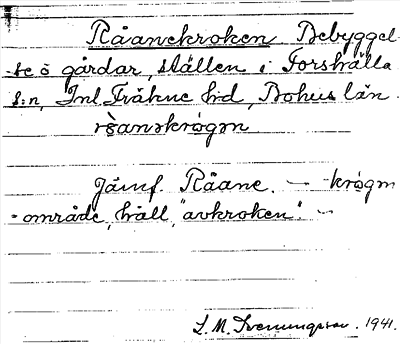 Råanekroken Bebyggel-
se o gårdar, ställen i Forshälla
s:n, Inl. Fräkne hd, Bohus län.
råanskrògen
Jämf. Råane. — krògen
= område, håll, "avkroken". —
L. M. Svenungsson. 1941.